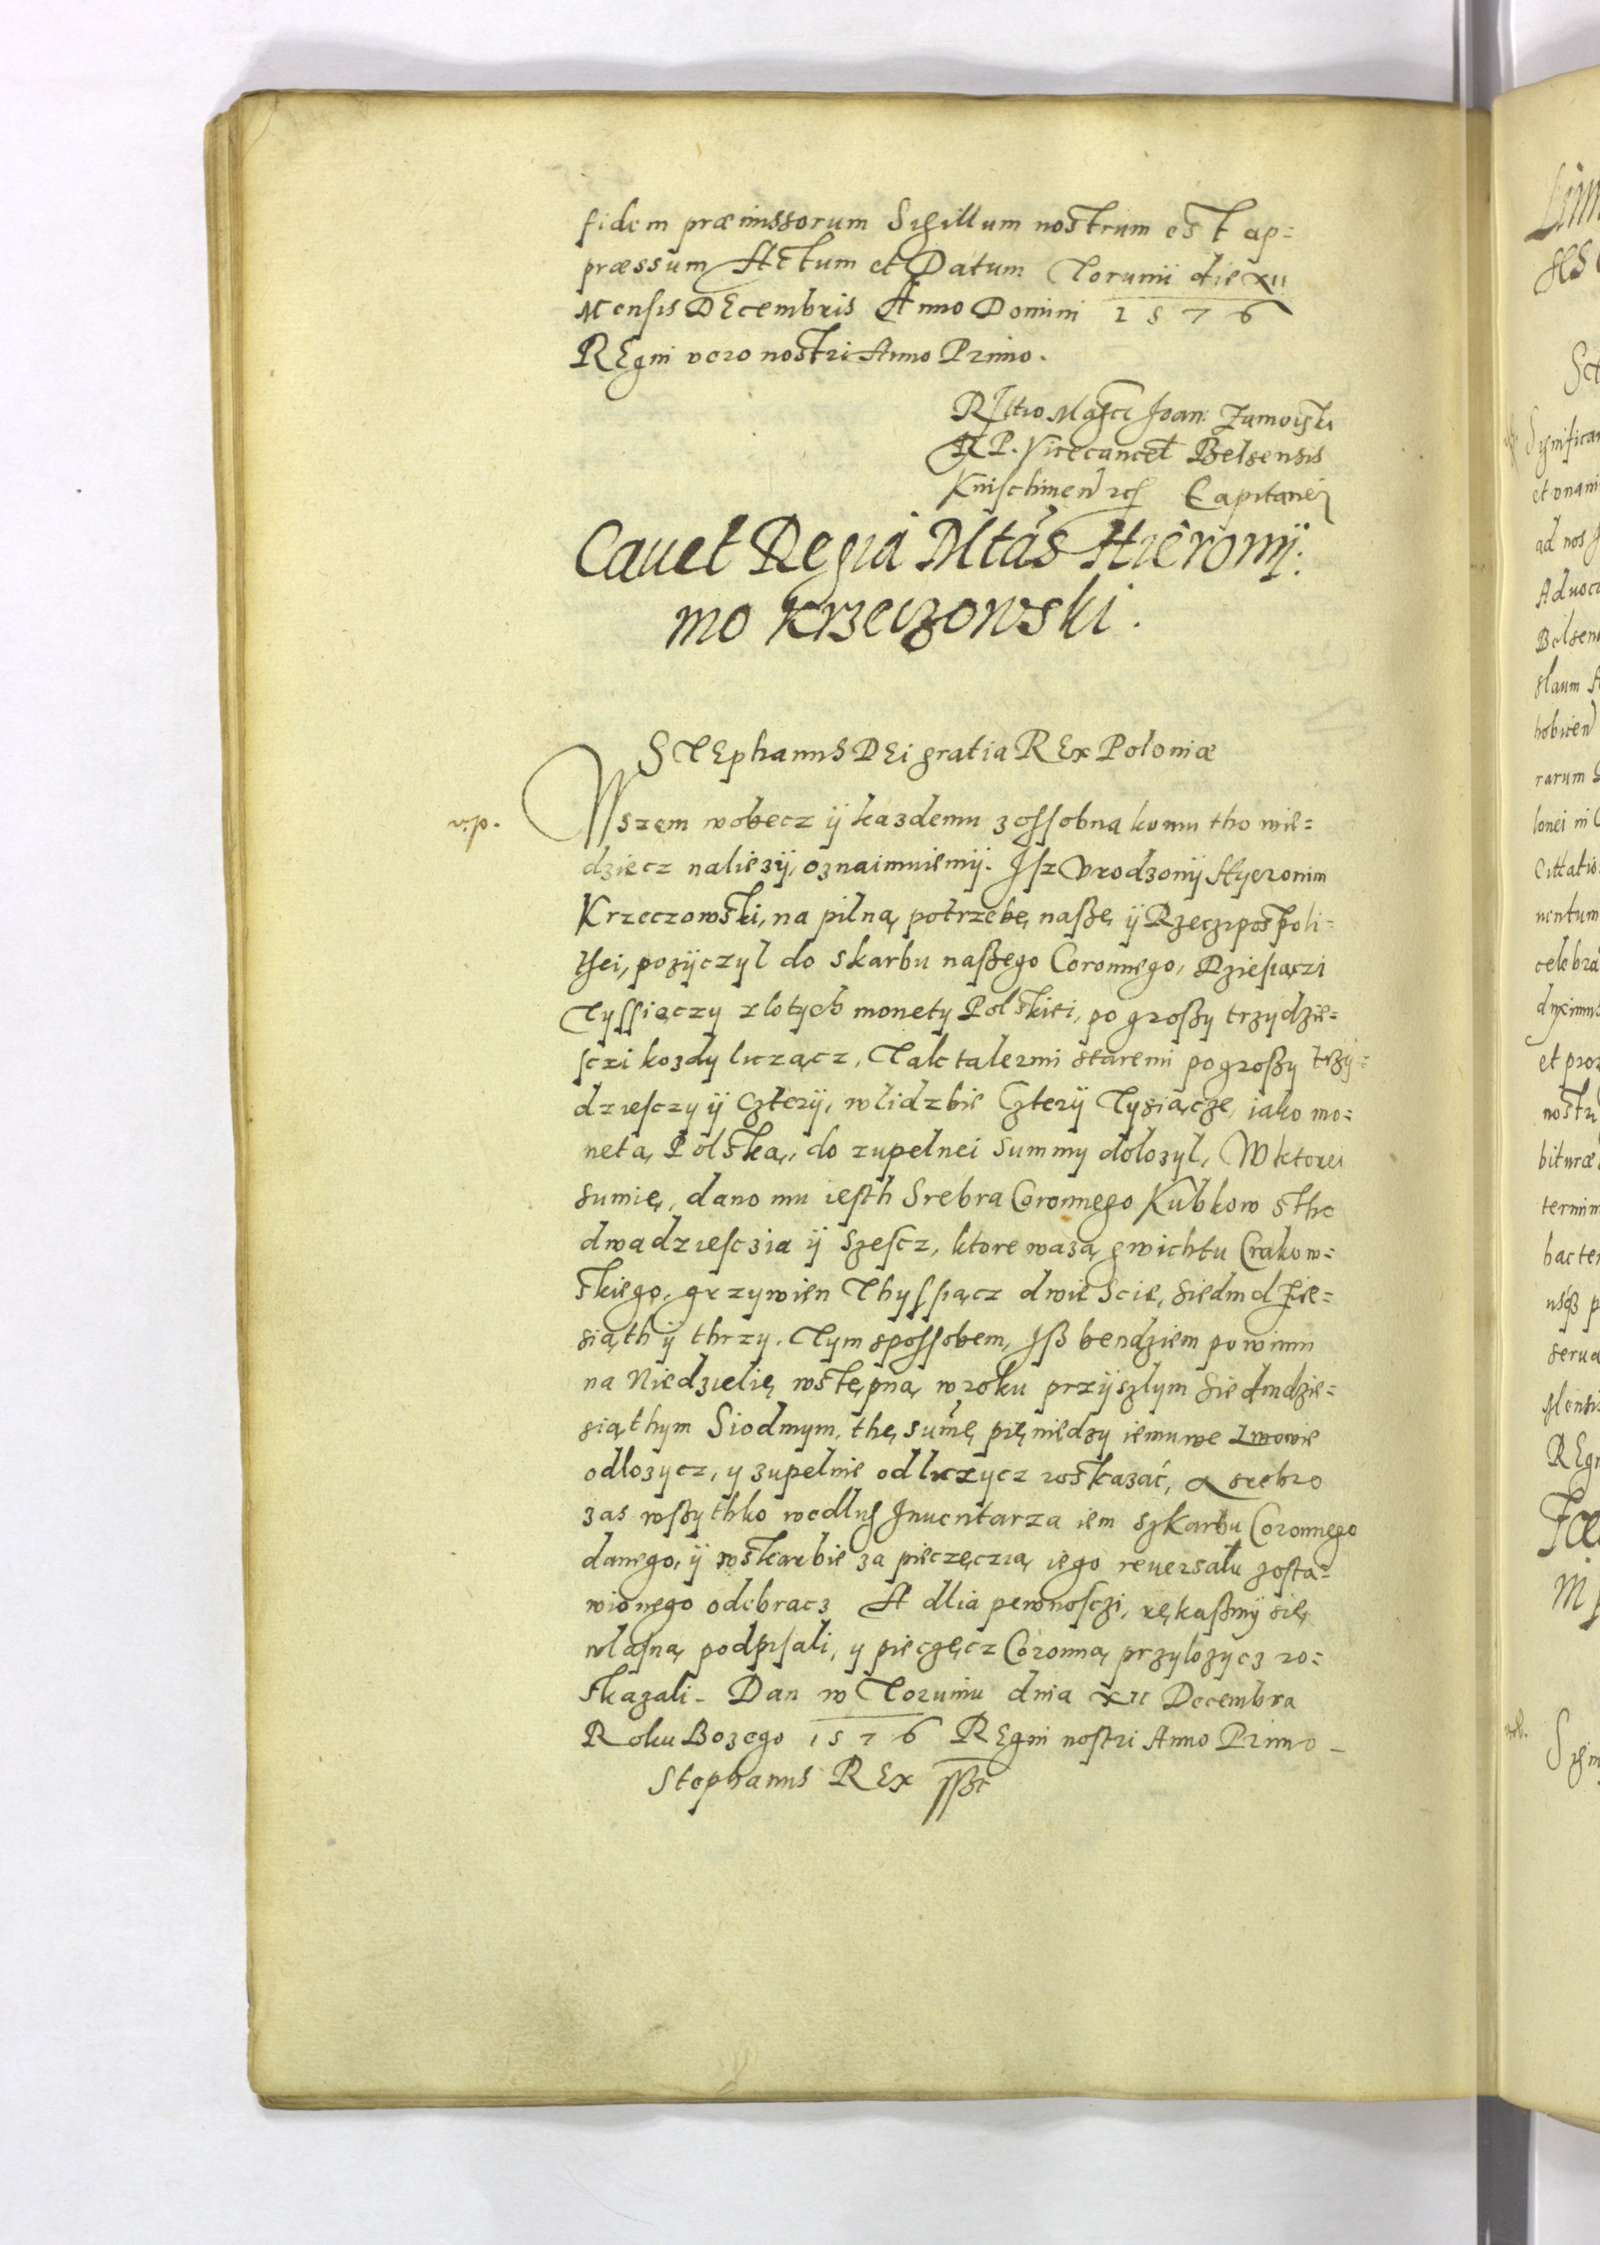 fidem præmissorum Sigillum nostrum est ap=
præssum Actum et Datum Torunii die XII
Mensis DEcembris Anno Domini 1576
REgni vero nostri Anno Primo.
Rltio Mgfci Joan: Zamoiski
RP. Vicecancel Belsensis
Knischinen Capitanei
Cauet Regia Mtas Hieronÿ:
mo Krzeczowski.
STEphanus DEi gratia REx Poloniæ
Wszem wobecz ÿ kazdemu zossobna komu tho wie=
dziecz naliezÿ, oznaimniemÿ. Jsz Vrodzonÿ Hyeronim
Krzeczowski, na pilną potrzebę naßę ÿ Rzeczipospoli=
thei, pozÿczyl do skarbu naßego Coronnego, Dziesiączi
Tyssięczy zlotych monety Polskiei, po großy trzydzie=
sczi kozdy licząc, Tak talermi staremi po großy trzÿ=
dziesczy ÿ Czterÿ, w lidzbie Czterÿ Tysiącze, iako mo=
netą Polską, do zupelnei Summy dolozyl, W ktorei
sumię, dano mu iesth Srebra Coronnego Kubkow sthe
dwadziesczia ÿ Szescz, ktore wazą gwichtu Crakow=
skiego, grzywien Thyssiącz dwie Scie, siedmdzie=
siąth ÿ thrzy. Tym spossobem, Jß bendziem powinni
na Niedzielię wstępną w roku przÿszlym Siedmdzie=
siąthym Siodmym, thę sumę pięniedzy iemu we Lwowie
odlozycz, y zupelnie odliczycz roskazać, a srebro
zas wßythko wedlug Jnuentarza iem szkarbu Coronnego
danego, ÿ w skarbie za pieczęczią iego reuersalu zosta=
wionego odebracz A dlia pewnosczi, rękaßmÿ się
wlasną podpisali, y pieczęcz Coronną przylozycz ro=
skazali. Dan w Toruniu dnia XII Decembra
Roku Bozego 1576 REgni nostri Anno Primo
Stephanus REx ssßt